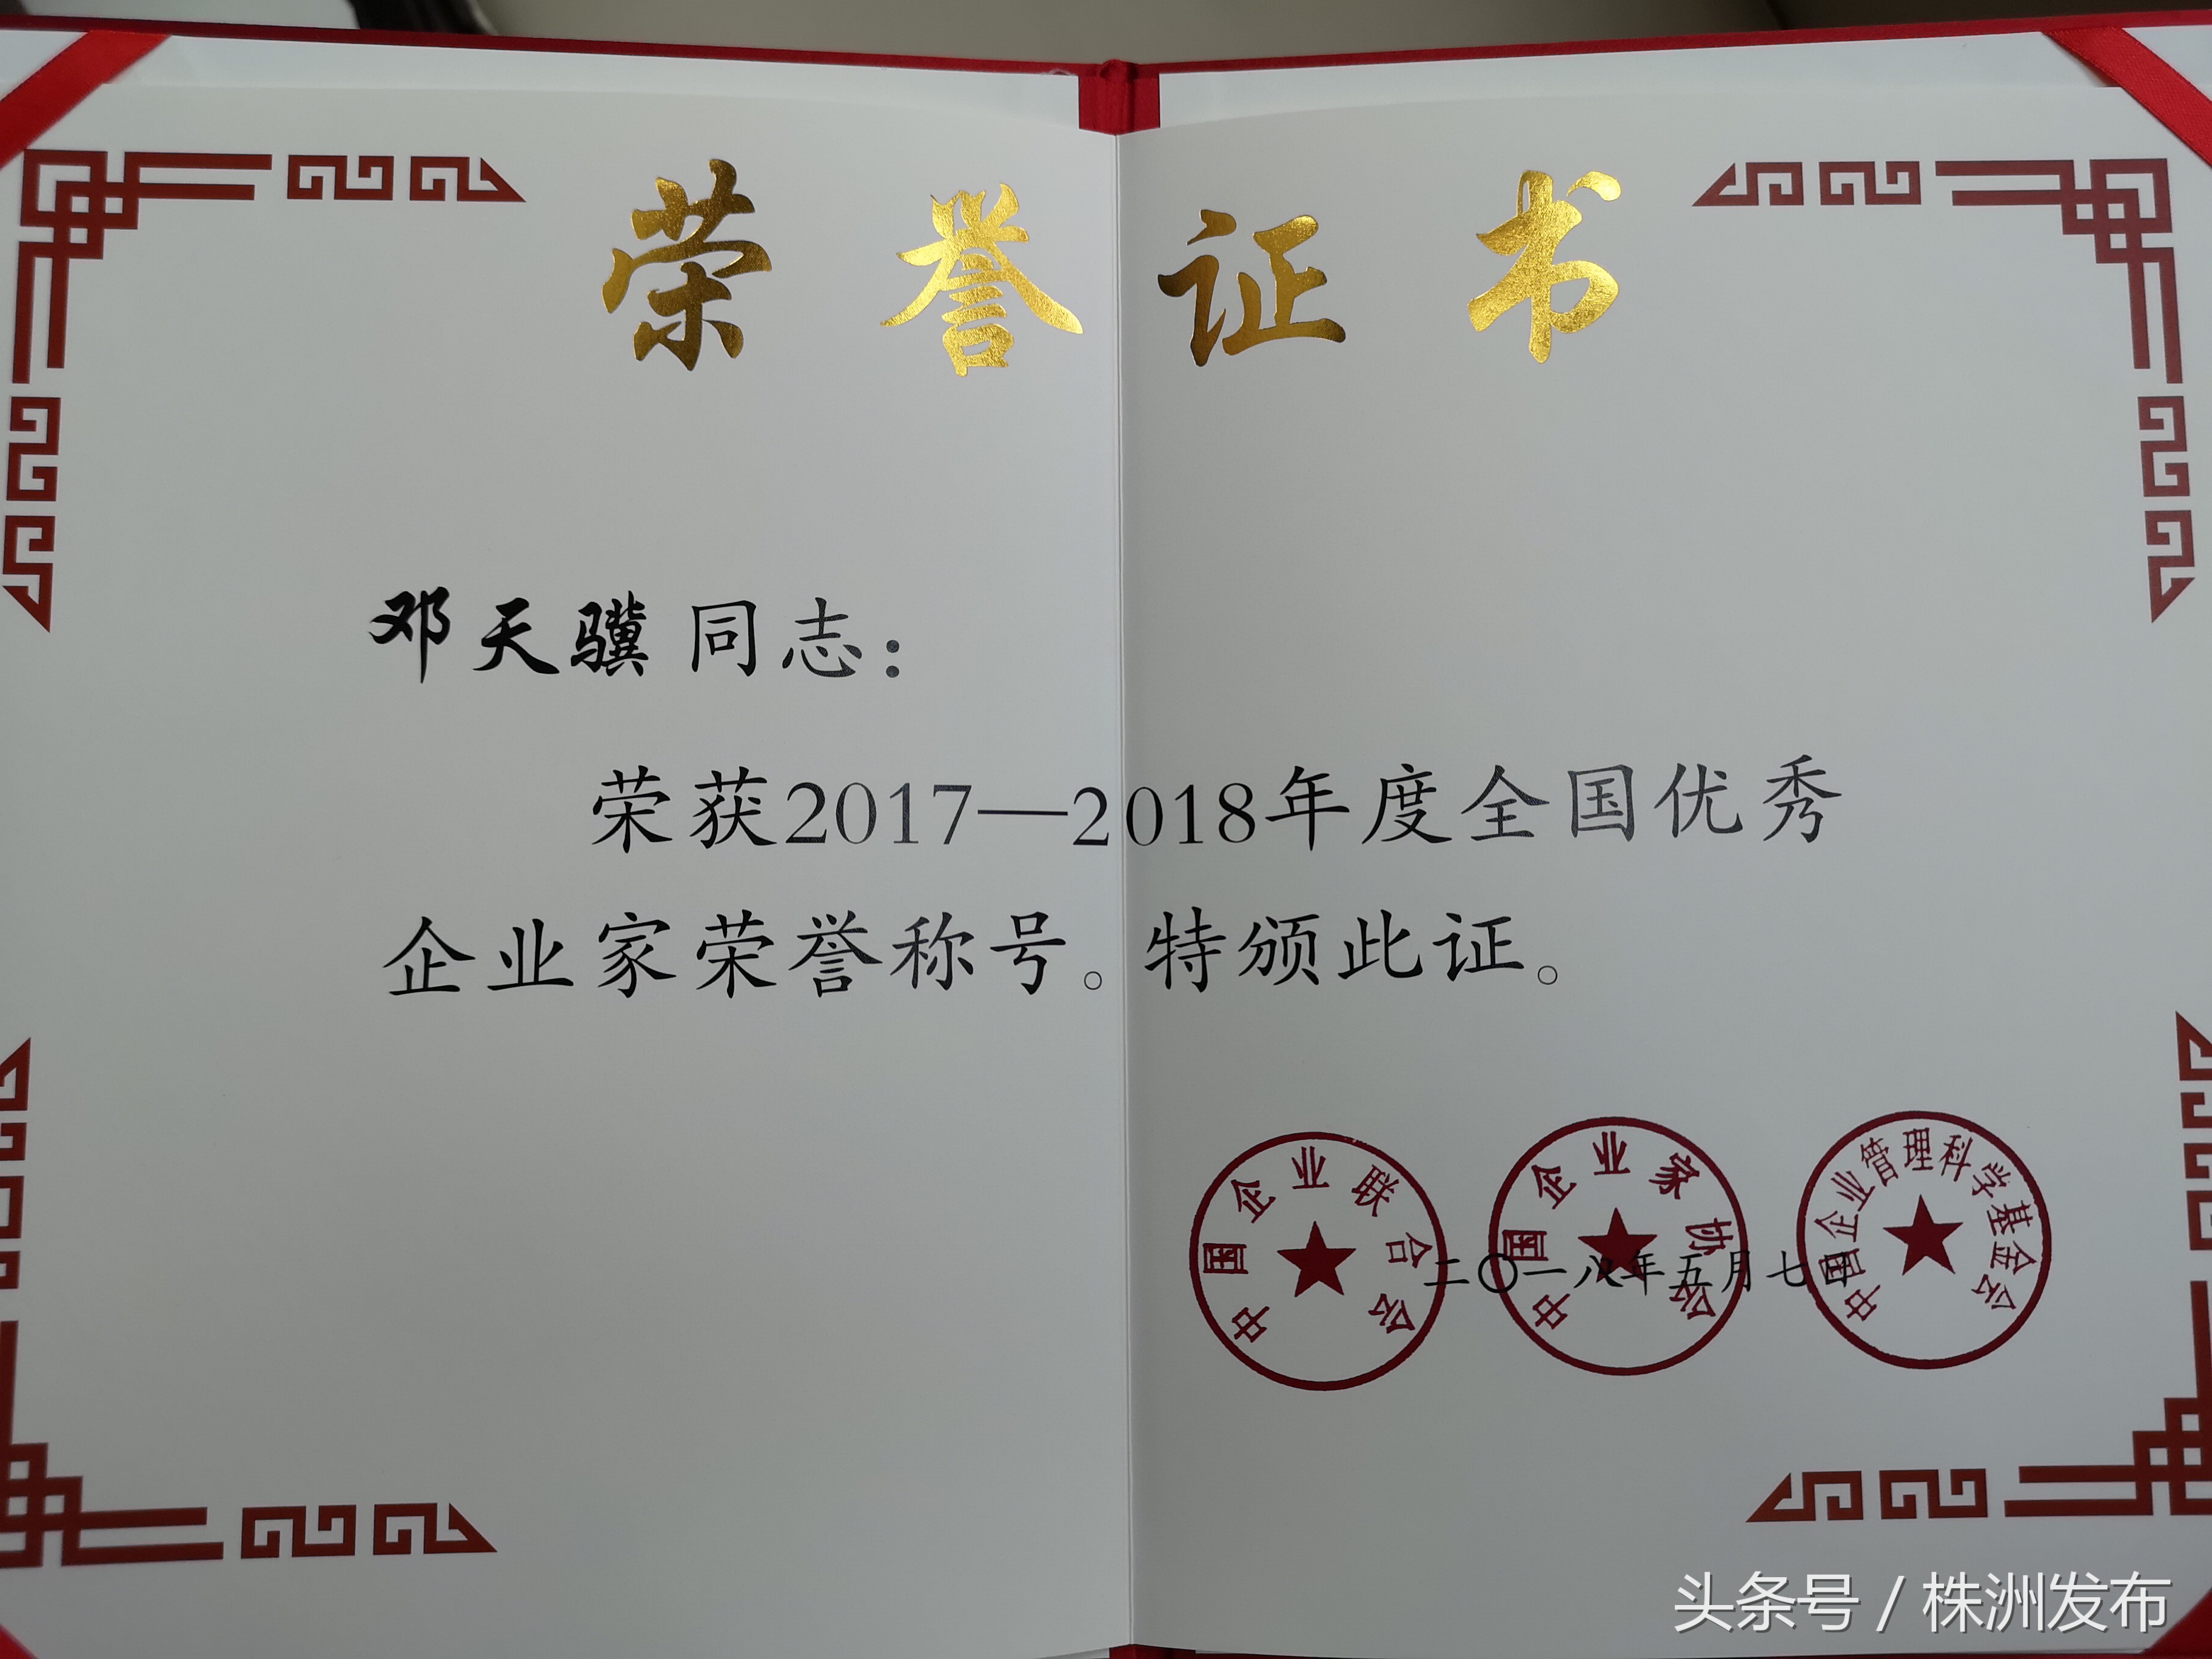 荣誉证书
邓天骥同志：
荣获2017—2018年度全国优秀
企业家荣誉称号。特颁此证。
中国企业联合会
中国企业家协会
中国企业管理科学基金会
二〇一八年五月七日
头条号 / 株洲发布